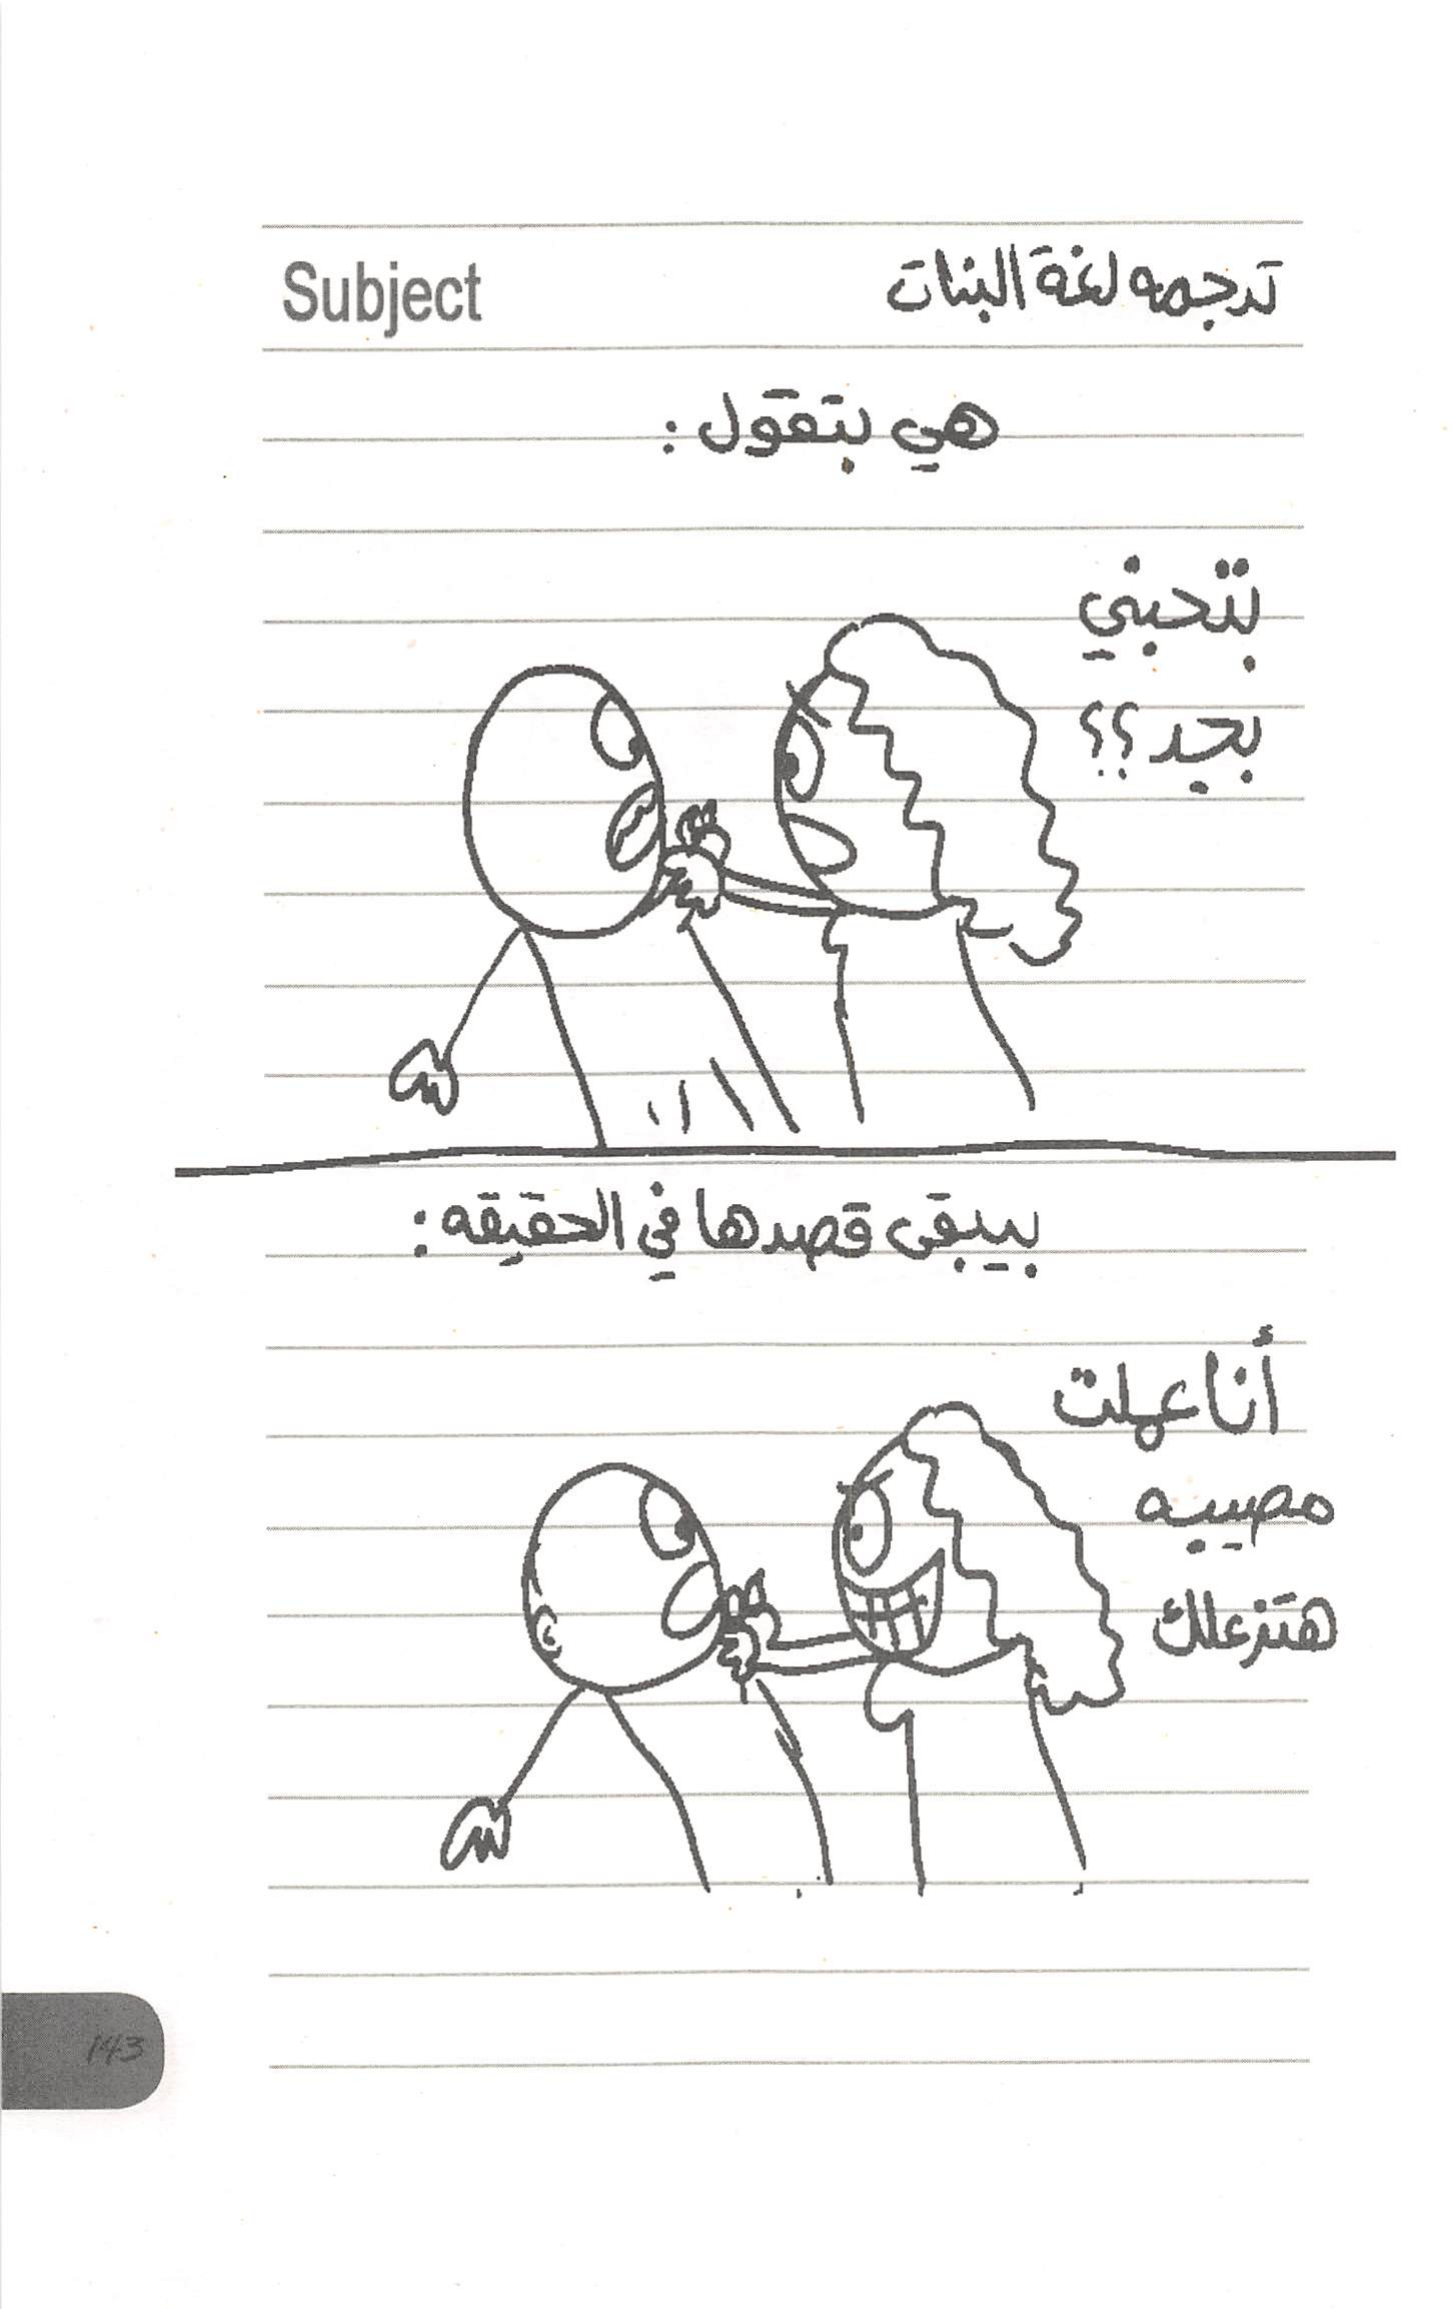 Subject
ترجمه لغة البنات
هي بتقول:
بتحبني
بجد؟؟
بيبقى قصدها في الحقيقه:
أنا عملت
مصيبه
هتزعلك
143